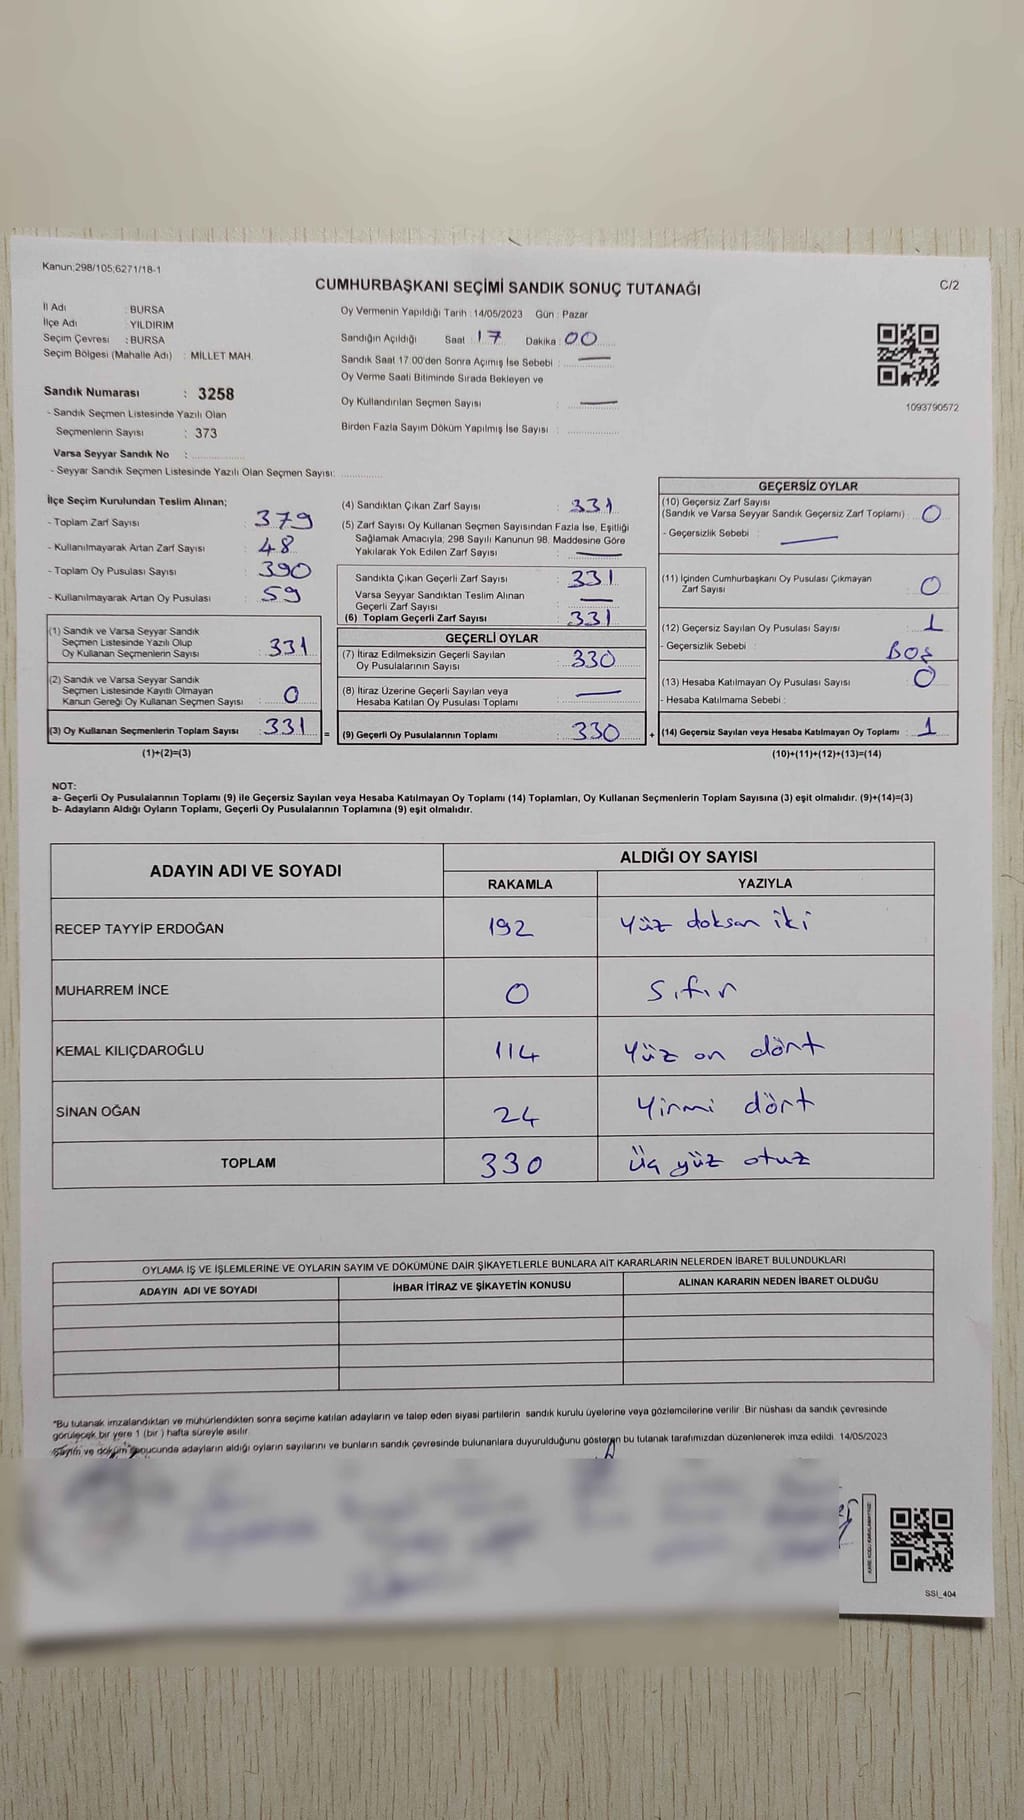 Kanun;298/105;6271/18-1
C/2
CUMHURBAŞKANI SEÇİMİ SANDIK SONUÇ TUTANAĞI
İl Adı : BURSA
İlçe Adı : YILDIRIM
Seçim Çevresi : BURSA
Seçim Bölgesi (Mahalle Adı) : MİLLET MAH.
Sandık Numarası : 3258
- Sandık Seçmen Listesinde Yazılı Olan
Seçmenlerin Sayısı : 373
Varsa Seyyar Sandık No :
- Seyyar Sandık Seçmen Listesinde Yazılı Olan Seçmen Sayısı:
Oy Vermenin Yapıldığı Tarih : 14/05/2023 Gün : Pazar
Sandığın Açıldığı Saat : 17 Dakika : 00
Sandık Saat 17:00'den Sonra Açımış İse Sebebi : —
Oy Verme Saati Bitiminde Sırada Bekleyen ve
Oy Kullandırılan Seçmen Sayısı : —
Birden Fazla Sayım Döküm Yapılmış İse Sayısı :
1093790572
İlçe Seçim Kurulundan Teslim Alınan;
- Toplam Zarf Sayısı : 379
- Kullanılmayarak Artan Zarf Sayısı : 48
- Toplam Oy Pusulası Sayısı : 390
- Kullanılmayarak Artan Oy Pusulası : 59
(1) Sandık ve Varsa Seyyar Sandık
Seçmen Listesinde Yazılı Olup
Oy Kullanan Seçmenlerin Sayısı : 331
(2) Sandık ve Varsa Seyyar Sandık
Seçmen Listesinde Kayıtlı Olmayan
Kanun Gereği Oy Kullanan Seçmen Sayısı : 0
(3) Oy Kullanan Seçmenlerin Toplam Sayısı : 331
(1)+(2)=(3)
=
(4) Sandıktan Çıkan Zarf Sayısı : 331
(5) Zarf Sayısı Oy Kullanan Seçmen Sayısından Fazla İse, Eşitliği
Sağlamak Amacıyla; 298 Sayılı Kanunun 98. Maddesine Göre
Yakılarak Yok Edilen Zarf Sayısı : —
Sandıkta Çıkan Geçerli Zarf Sayısı : 331
Varsa Seyyar Sandıktan Teslim Alınan
Geçerli Zarf Sayısı : —
(6) Toplam Geçerli Zarf Sayısı : 331
GEÇERLİ OYLAR
(7) İtiraz Edilmeksizin Geçerli Sayılan
Oy Pusulalarının Sayısı : 330
(8) İtiraz Üzerine Geçerli Sayılan veya
Hesaba Katılan Oy Pusulası Toplamı : —
(9) Geçerli Oy Pusulalarının Toplamı : 330
+
GEÇERSİZ OYLAR
(10) Geçersiz Zarf Sayısı
(Sandık ve Varsa Seyyar Sandık Geçersiz Zarf Toplamı) : 0
- Geçersizlik Sebebi : —
(11) İçinden Cumhurbaşkanı Oy Pusulası Çıkmayan
Zarf Sayısı : 0
(12) Geçersiz Sayılan Oy Pusulası Sayısı : 1
- Geçersizlik Sebebi : BOŞ
(13) Hesaba Katılmayan Oy Pusulası Sayısı : 0
- Hesaba Katılmama Sebebi :
(14) Geçersiz Sayılan veya Hesaba Katılmayan Oy Toplamı : 1
(10)+(11)+(12)+(13)=(14)
NOT:
a- Geçerli Oy Pusulalarının Toplamı (9) ile Geçersiz Sayılan veya Hesaba Katılmayan Oy Toplamı (14) Toplamları, Oy Kullanan Seçmenlerin Toplam Sayısına (3) eşit olmalıdır. (9)+(14)=(3)
b- Adayların Aldığı Oyların Toplamı, Geçerli Oy Pusulalarının Toplamına (9) eşit olmalıdır.
ADAYIN ADI VE SOYADI ALDIĞI OY SAYISI
RAKAMLA YAZIYLA
RECEP TAYYİP ERDOĞAN 192 Yüz doksan iki
MUHARREM İNCE 0 Sıfır
KEMAL KILIÇDAROĞLU 114 Yüz on dört
SİNAN OĞAN 24 Yirmi dört
TOPLAM 330 üç yüz otuz
OYLAMA İŞ VE İŞLEMLERİNE VE OYLARIN SAYIM VE DÖKÜMÜNE DAİR ŞİKAYETLERLE BUNLARA AİT KARARLARIN NELERDEN İBARET BULUNDUKLARI
ADAYIN ADI VE SOYADI İHBAR İTİRAZ VE ŞİKAYETİN KONUSU ALINAN KARARIN NEDEN İBARET OLDUĞU
"Bu tutanak imzalandıktan ve mühürlendikten sonra seçime katılan adayların ve talep eden siyasi partilerin sandık kurulu üyelerine veya gözlemcilerine verilir. Bir nüshası da sandık çevresinde
görülecek bir yere 1 (bir ) hafta süreyle asılır.
Sayım ve döküm sonucunda adayların aldığı oyların sayılarını ve bunların sandık çevresinde bulunanlara duyurulduğunu gösteren bu tutanak tarafımızdan düzenlenerek imza edildi. 14/05/2023
SSI_404